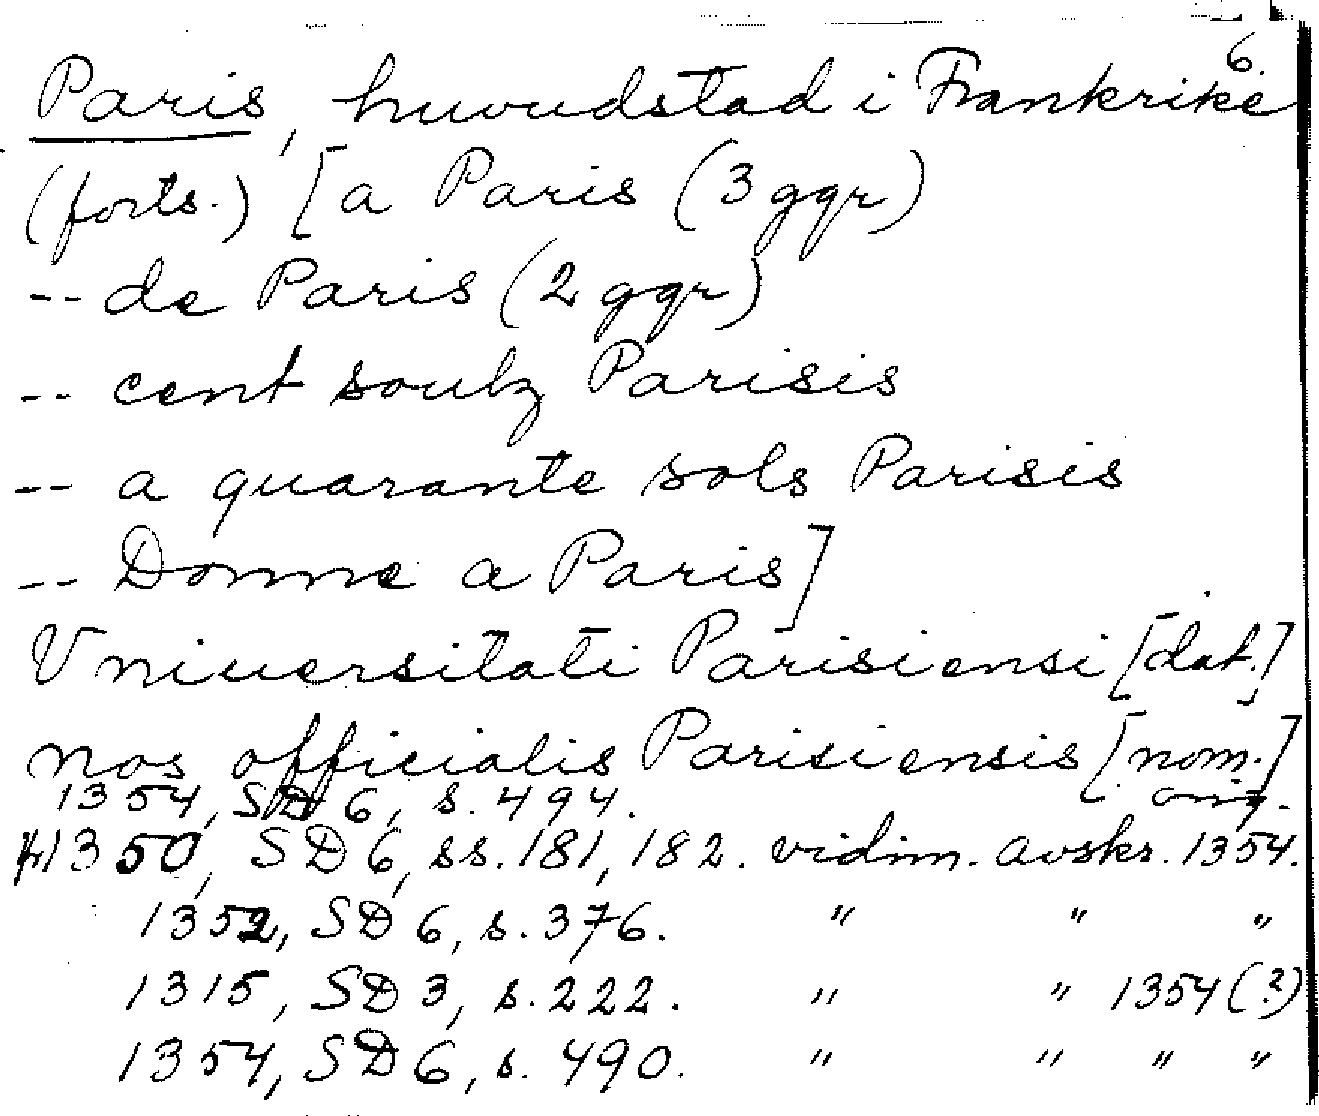 6.
Paris, huvudstad i Frankrike
(forts.) [a Paris (3 ggr)
-- de Paris (2 ggr)
-- cent soulz Parisis
-- a quarante sols Parisis
-- Donne a Paris]
Vniuersitati Parisiensi [dat.]
nos officialis Parisiensis [nom.]
1354, SD 6, s. 494. orig.
1350, SD 6, ss. 181, 182. vidim. avskr. 1354.
1352, SD 6, s. 376. " " "
1315, SD 3, s. 222. " " 1354 (?)
1354, SD 6, s. 490. " " " "